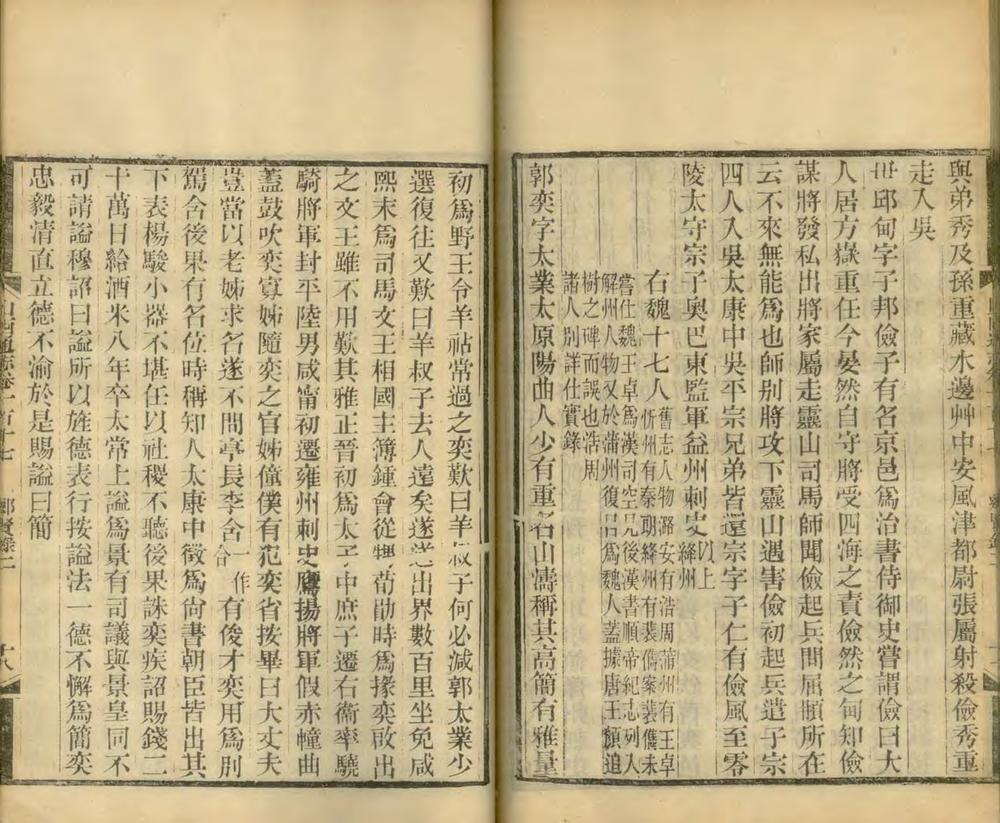 與弟秀及孫重藏水邊艸中安風津都尉張屬射殺儉秀重
走入吳
毌邱甸字子邦儉子有名京邑爲治書侍御史嘗謂儉曰大
人居方嶽重任今晏然自守將受四海之責儉然之甸知儉
謀將發私出將家屬走靈山司馬師聞儉起兵問屈頵所在
云不來無能爲也師别將攻下靈山遇害儉初起兵遣子宗
四人入吳太康中吳平宗兄弟皆還宗字子仁有儉風至零
陵太守宗子奧巴東監軍益州刺史以上絳州
右魏十七人舊志人物潞安有浩周蒲州有王卓
忻州有秦朗絳州有裴儁案裴儁未
嘗仕魏王卓爲漢司空見後漢書順帝紀志列入
解州人物又於蒲州復日爲魏人蓋據唐王顏追
樹之碑而誤也浩周
諸人别詳仕實錄
郭奕字太業太原陽曲人少有重名山濤稱其高簡有雅量
初爲野王令羊祜常過之奕歎曰羊叔子何必減郭太業少
選復往又歎曰羊叔子去人遠矣遂送出界數百里坐免咸
熙末爲司馬文王相國主簿鍾會從甥荀勖時爲掾奕啟出
之文王雖不用歎其雅正晉初爲太子中庶子遷右衞率驍
騎將軍封平陸男咸甯初遷雍州刺史鷹揚將軍假赤幢曲
蓋鼓吹奕寡姊隨奕之官姊僮僕有犯奕省按畢曰大丈夫
豈當以老姊求名遂不問亭長李含一作含有俊才奕用爲别
駕含後果有名位時稱知人太康中徵爲尙書朝臣皆出其
下表楊駿小器不堪任以社稷不聽後果誅奕疾詔賜錢二
十萬日給酒米八年卒太常上謚爲景有司議與景皇同不
可請謚穆詔曰謚所以旌德表行按謚法一德不懈爲簡奕
忠毅清直立德不渝於是賜謚曰簡